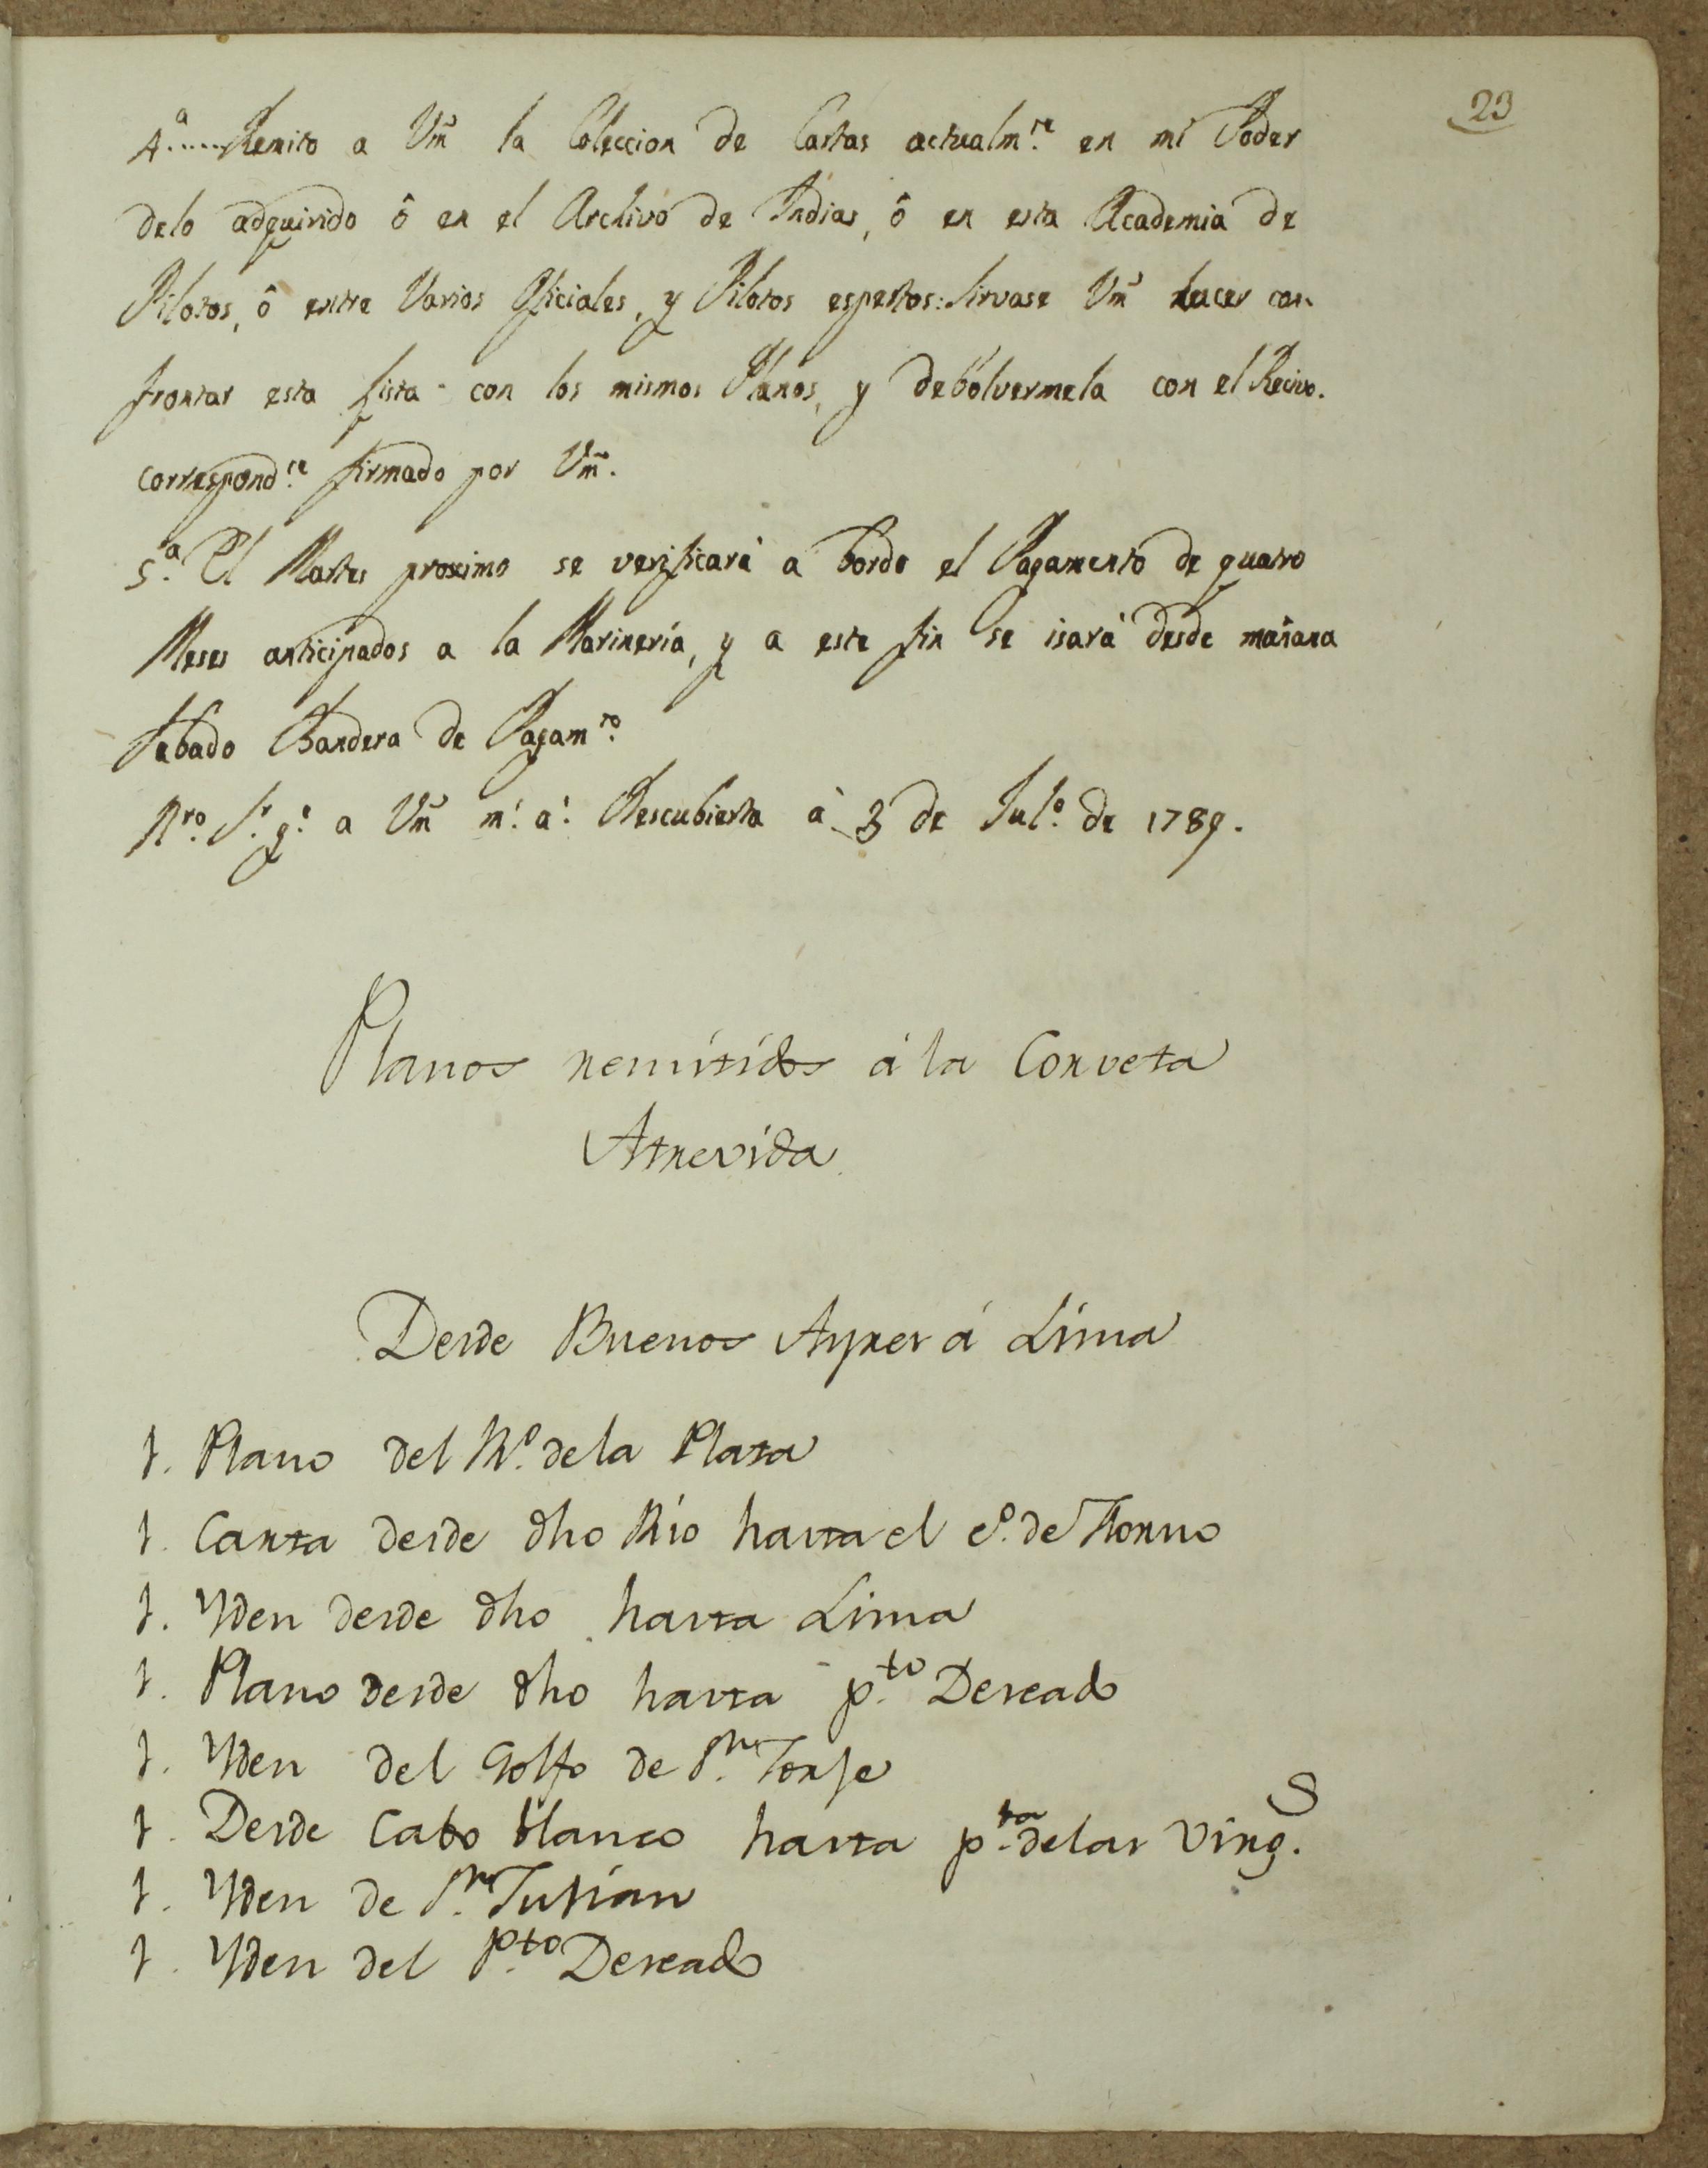 23
4.ª.....Remito a Vm̃ la Coleccion de Cartas actualm.te en mi Poder
delo adquirido ô en el Archivo de Indias, ô en esta Academia de
Pilotos, ô entre Varios Oficiales, y Pilotos espertos: Sirvase Vm̃ hacer con
frontar esta Lista con los mismos Planos, y debolvermela con el Recivo.
correspond.te firmado por Vm̃.
5.ª El Martes proximo se verificará a bordo el Pagamento de quatro
Meses anticipados a la Marinería, y a este fin se isará desde mañana
Sabado Bandera de Pagam.to
Nro. S.r g.e a Vm̃ m.s a.s Descubierta á 3 de Jul.o de 1789.
Planos remitidos á la Corveta
Atrevida
Desde Buenos Ayres á Lima
1. Plano del R.o dela Plata
1. Carta desde dho Rio hasta el c.o de Horno
1. Yden desde dho hasta Lima
1. Plano desde dho hasta p.to Deseado
1. Yden del Golfo de S.n Jorje
1. Desde Cabo blanco hasta p.ta delas Virg.s
1. Yden de S.n Julian
1. Yden del P.to Deseado